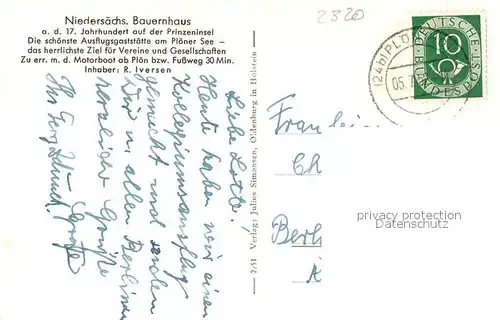 Niedersächs. Bauernhaus
a. d. 17. Jahrhundert auf der Prinzeninsel
Die schönste Ausflugsgaststätte am Plöner See –
das herrlichste Ziel für Vereine und Gesellschaften
Zu err. m. d. Motorboot ab Plön bzw. Fußweg 30 Min.
Inhaber: R. Iversen
2320
(24b) PLÖ
05.
DEUTSCHE
BUNDESPOST
10
Liebe Lotte!
Heute haben wir einen
Kollegiumsausflug
gemacht und senden
Dir u. allen Berlinern
herzliche Grüße
Ihr Georg
Grete
2/51 Verlag: Julius Simonsen, Oldenburg in Holstein
Fräulein
Ch
Berl
privacy protection
Datenschutz